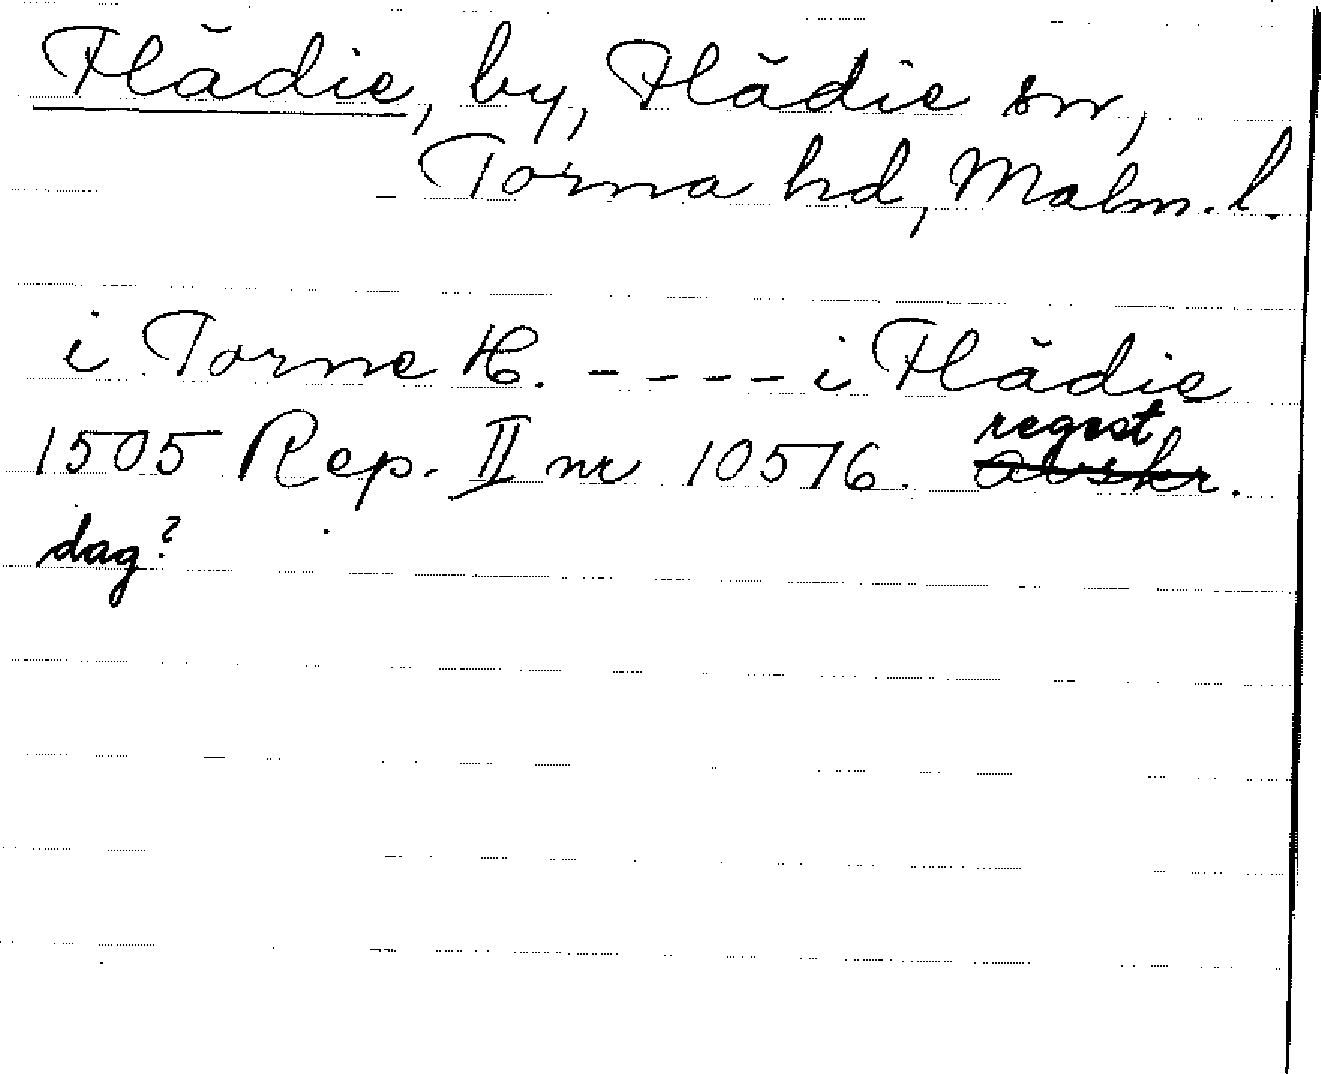 Flädie, by, Flädie sn,
Torna hd, Malm. l.
i Torne H. - - - - i Flädie
1505 Rep. II nr 10516. regest
abskr.
dag?